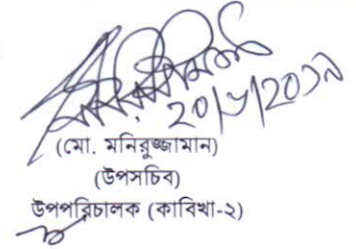 ২০/৮/২০১৯
(মো. মনিরুজ্জামান)
(উপসচিব)
উপপরিচালক (কাবিখা-২)